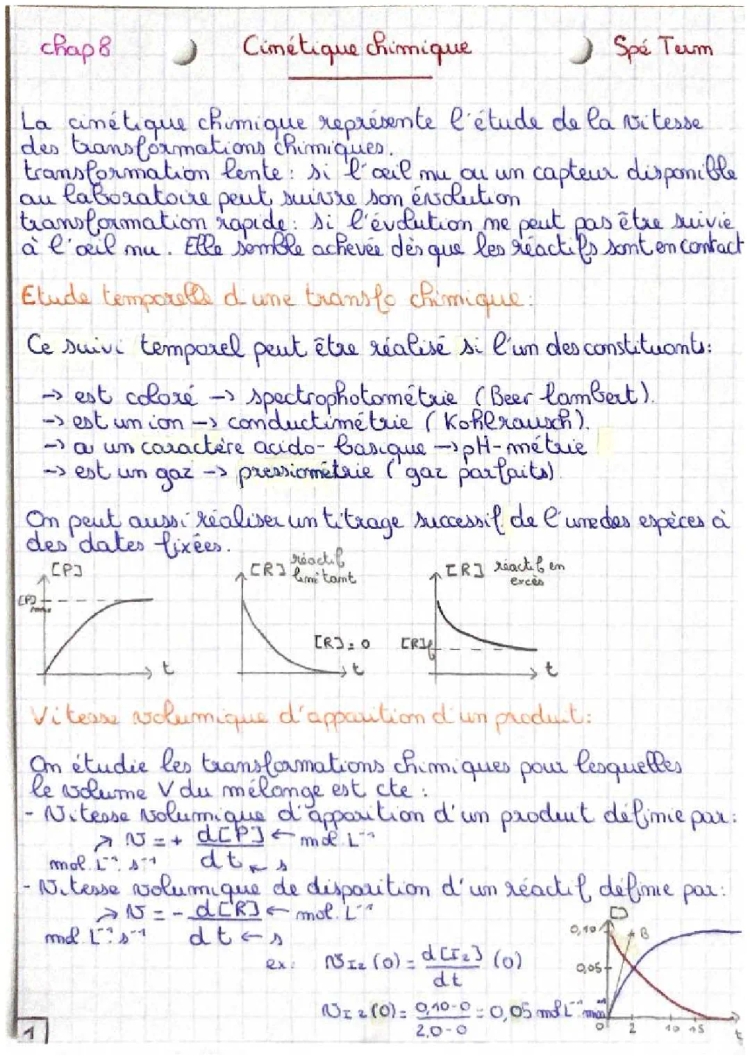 chap 8 Cinétique chimique Spé Term
La cinétique chimique représente l'étude de la vitesse
des transformations chimiques.
transformation lente : si l'œil nu ou un capteur disponible
au laboratoire peut suivre son évolution
transformation rapide : si l'évolution ne peut pas être suivie
à l'œil nu. Elle semble achevée dès que les réactifs sont en contact
Etude temporelle d'une transfo chimique :
Ce suivi temporel peut être réalisé si l'un des constituants :
-> est coloré -> spectrophotométrie (Beer lambert).
-> est un ion -> conductimétrie (Kohlrausch).
-> a un caractère acido-basique -> pH-métrie
-> est un gaz -> pressiométrie (gaz parfaits)
On peut aussi réaliser un titrage successif de l'une des espèces à
des dates fixées.
[P] [R] réactif limitant [R] réactif en excès
[P]max [R] = 0 [R]f
t t t
Vitesse volumique d'apparition d'un produit :
On étudie les transformations chimiques pour lesquelles
le volume V du mélange est cte :
- Vitesse volumique d'apparition d'un produit définie par :
v = + d[P] ← mol.L⁻¹
mol.L⁻¹.s⁻¹ dt ← s
- Vitesse volumique de disparition d'un réactif définie par :
v = - d[R] ← mol.L⁻¹
mol.L⁻¹.s⁻¹ dt ← s
ex : vI2 (0) = d[I2] (0)
dt
vI2 (0) = 0,10-0 = 0,05 mol L⁻¹
2,0-0
0,10 B
0,05
0 2 10 15 t
1